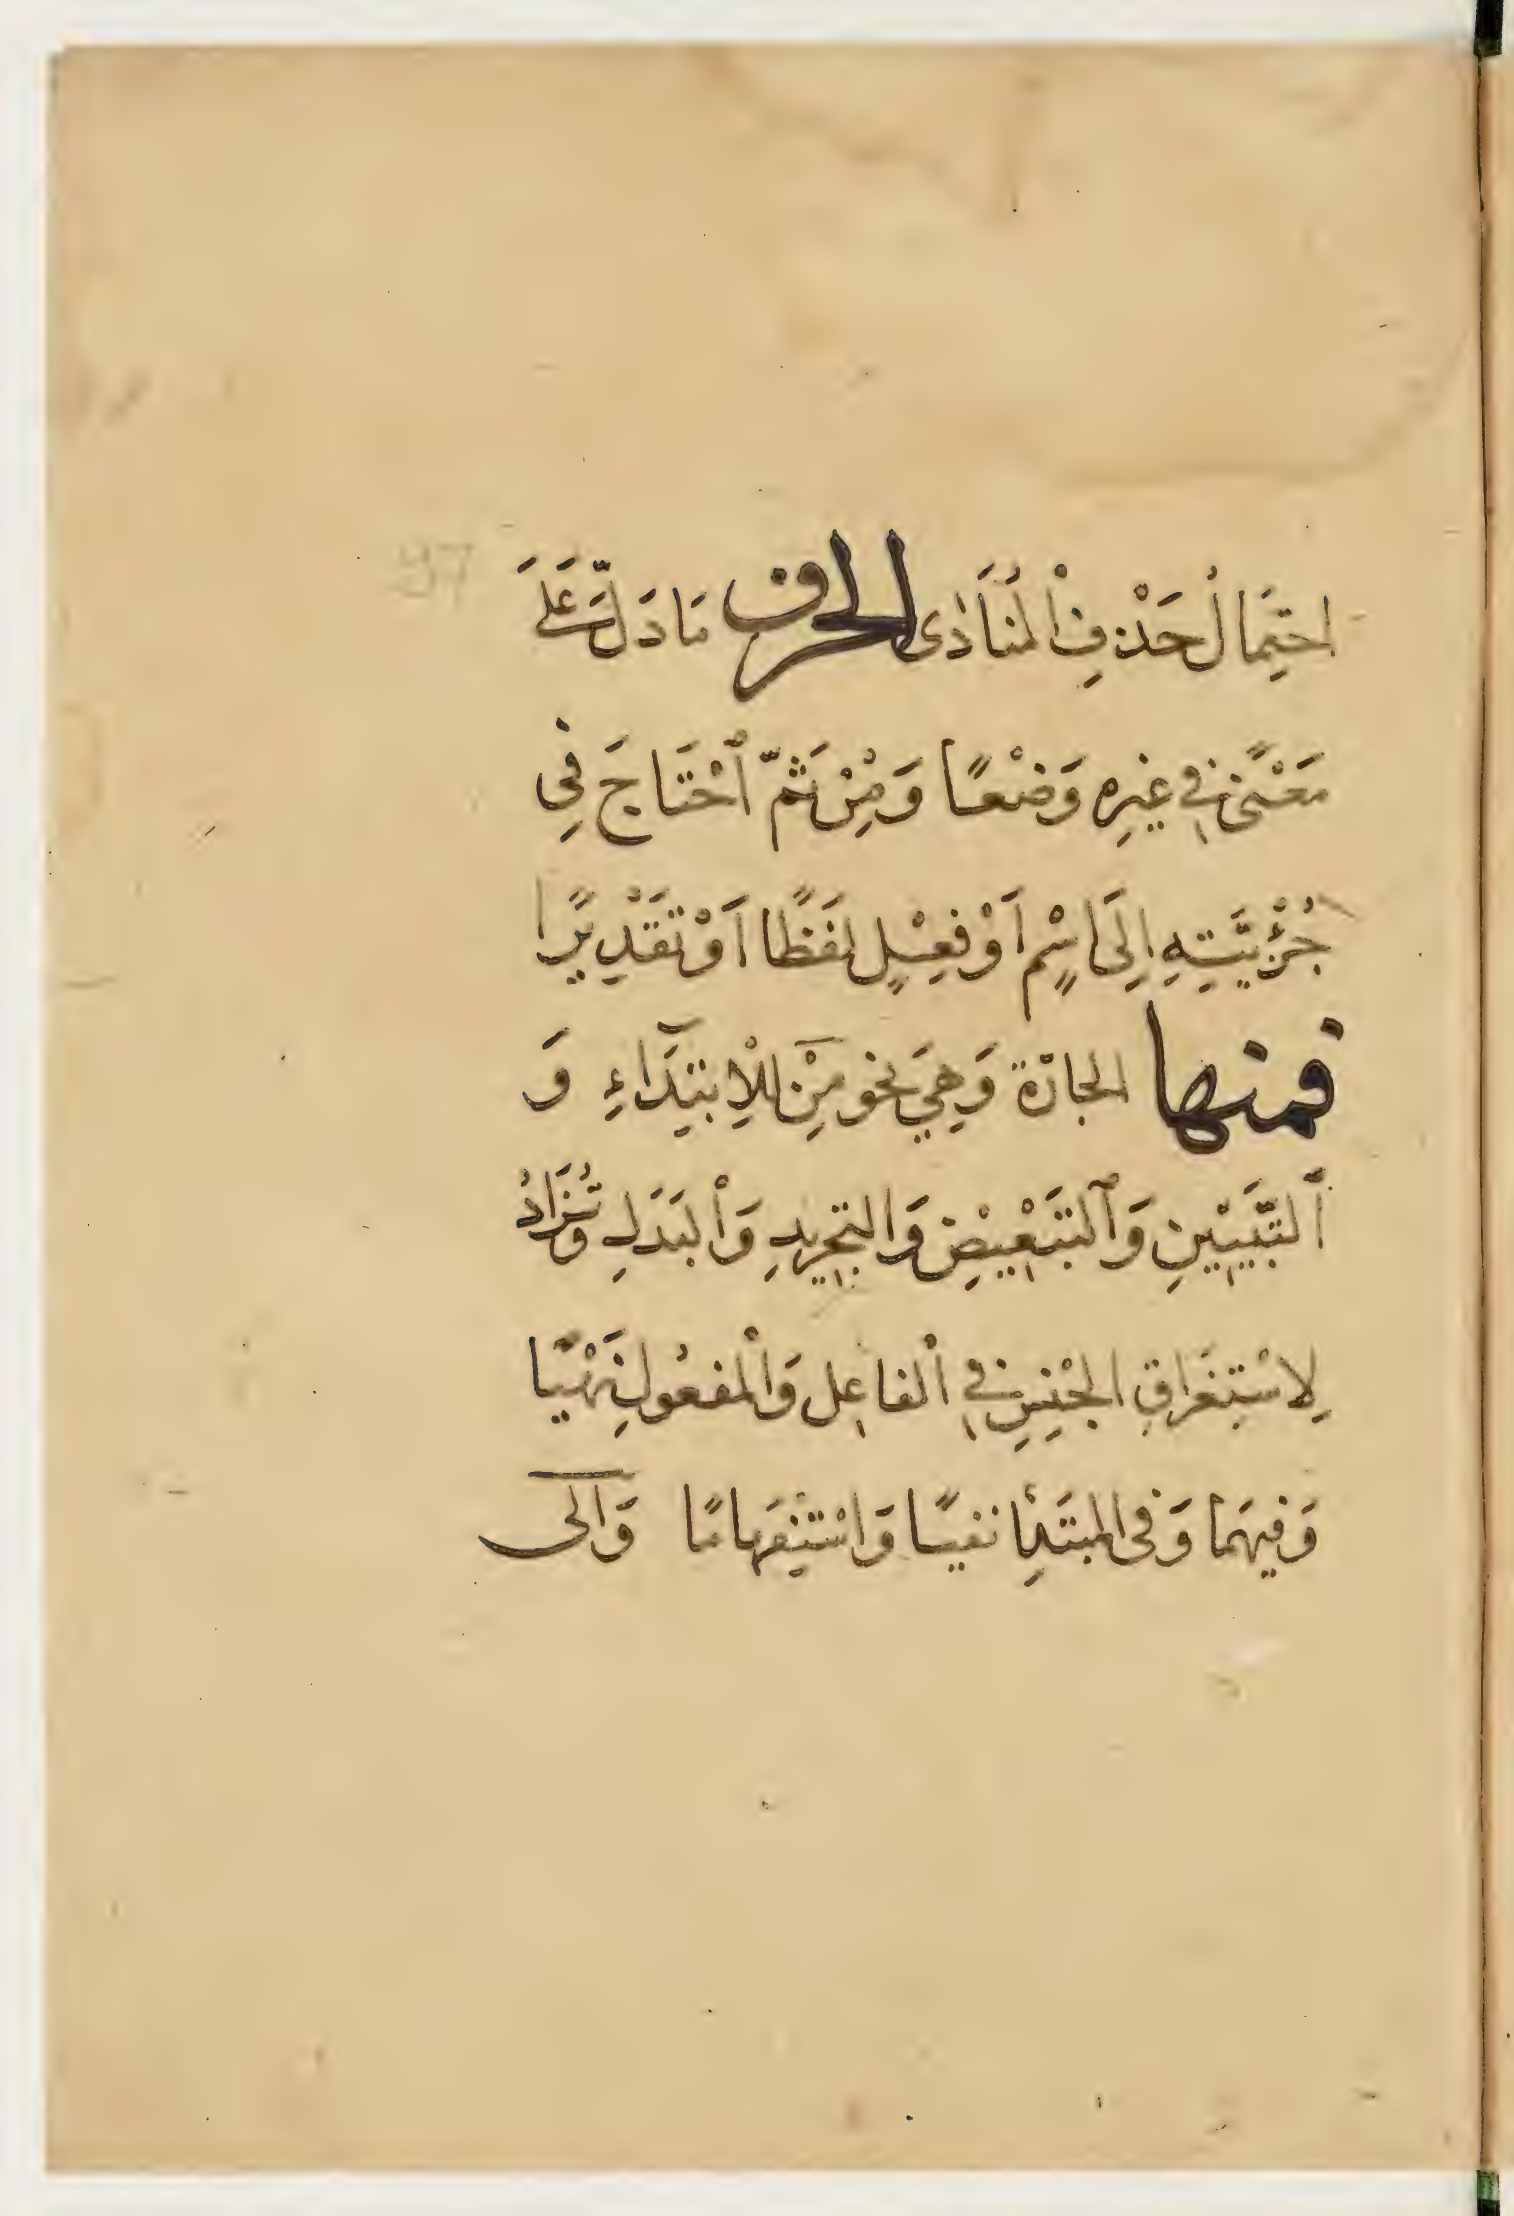 97
احتِمَالُ حَذْفِ الْمُنَادٰى الحرف مَا دَلَّ عَلَے
مَعْنًى فِي غيرِه وَضْعًا وَمِنْ ثَمَّ اَحْتَاجَ فِي
جُزْئِيَّتِهِ اِلَى اسْمٍ اَوْ فِعْلٍ لَفظًا اَوْ تَقْدِيرًا
فمنها الجارّة وَهِيَ نحو مِنْ لِلْاِبتِدَآءِ وَ
اَلتَّبْيِيْنِ وَاَلتَبْعِيْضِ وَالتجرِيدِ وَالْبَدَلِ وَتُزَادُ
لِاسْتِغرَاقِ الجْنِسِ فِي الْفاعِل وَالْمفعُولِ نَهْيًا
وَفيهَما وَفى المبتَدَإِ نفيًا وَاسْتِفهَامًا وَالى